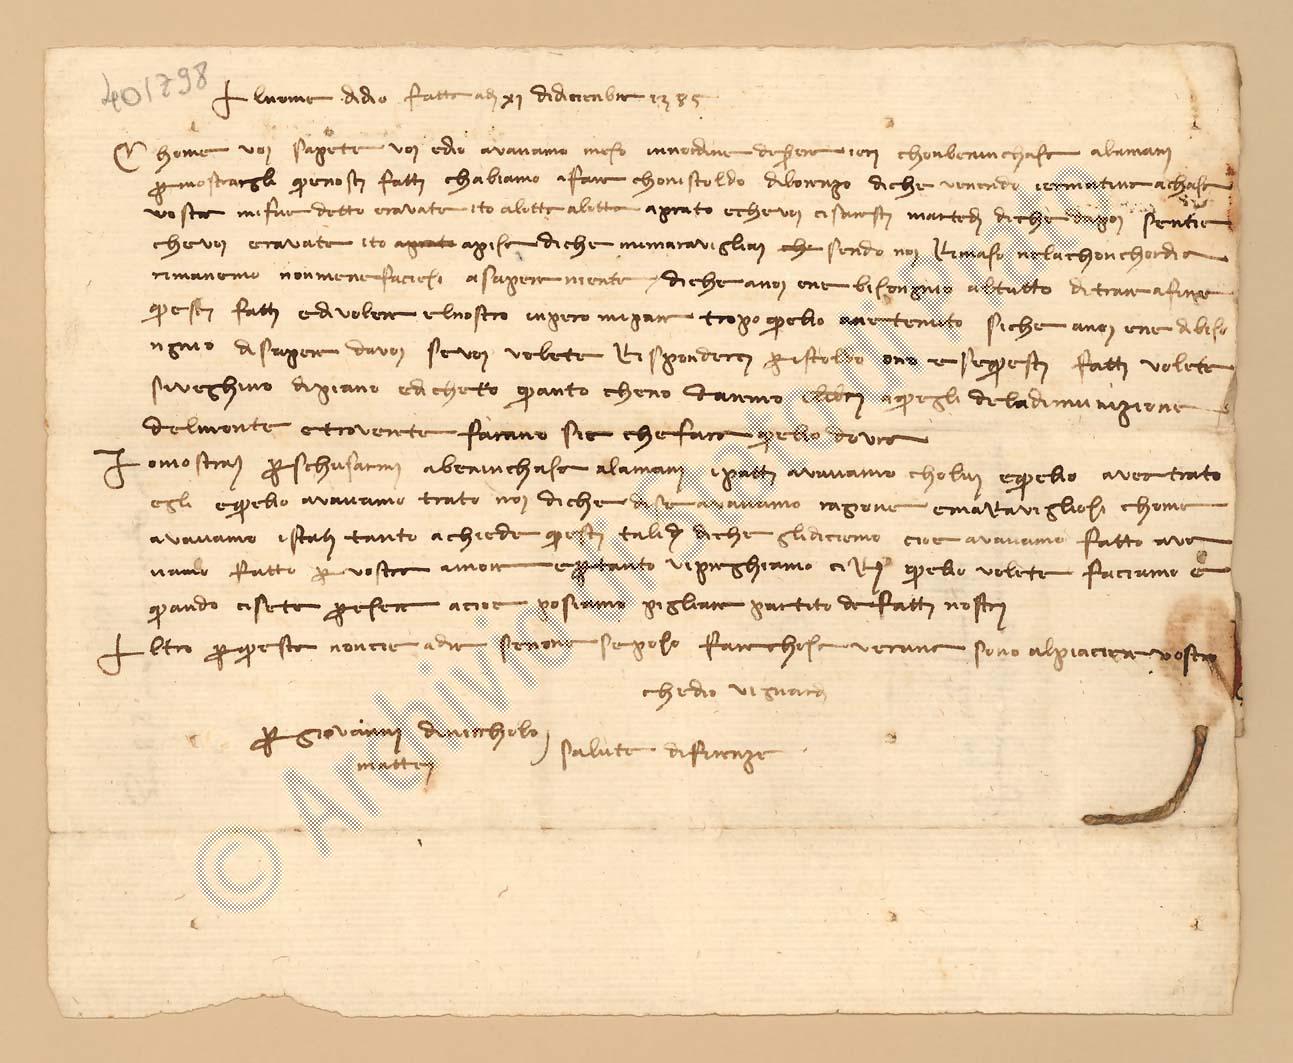 401798
I lnome didio fatta adi xi didiciembre 1385
Chome voi sapete voi edio avavamo meso innordine desere ieri chonbernchasa alamani
p mostrargli quenosti fatti chabiamo afare choristoldo dilorenzo diche venendo iermatina achasa
vostra mifue detto eravate ito alotta alotta aprato echevoi cisaresti martedi diche dapoi sentie
chevoi eravate ito aprato apisa diche mimaravigliai che sendo noi Rimaso nelachonchordia
rimanemo nonmene faciesi asapere niente diche anoi ene bisongnio altutto ditrare afine
questi fatti edivolere elnostro inpero mipare tropo quello avertenuto siche anoi ene dibiso
ngnio disapere davoi sevoi volete Rispondere p ristoldo ono e sequesti fatti volete
siveghino dipiano edichetto quanto cheno daremo aquegli deladiminizione
delmonte etroverete farano sie chefare quello dovra
Iomostrai p schusarmi abernchasa alamani ipatti avavamo cholui equello aver trato
egli equello avavamo trato noi diche disse avavamo ragione emaravigliosi chome
avavamo istati tanto achiede questi talidi diche glidiciemo cioe avavamo fatto ave
vamo fatto p vostro amore e ptanto vipreghiamo ci R quello volete faciamo e
quando cisete p esere acioe posiamo pigliare partito de fatti nostri
Altro p questa noncie adire senone seposo fare chosa veruna sono alpiaciere vostro
chedio viguardi
p giovanni dinicholo
mattei
salute difirenze
© Archivio di Stato di Prato